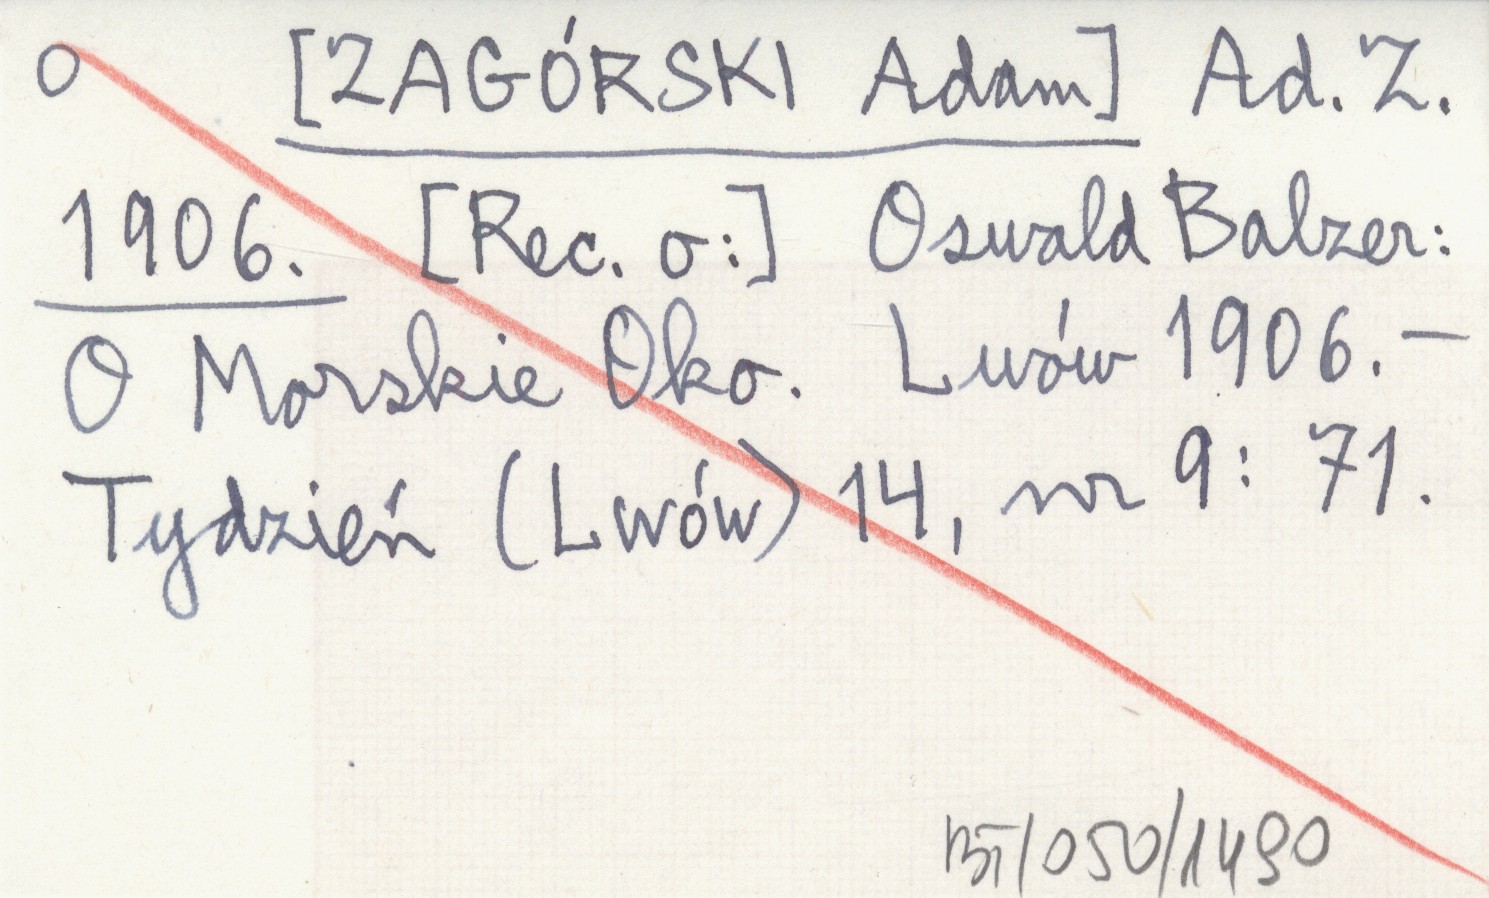 o [ZAGÓRSKI Adam] Ad. Z.
1906. [Rec. o:] Oswald Balzer:
O Morskie Oko. Lwów 1906. —
Tydzień (Lwów) 14, nr 9: 71.
BT/050/1490